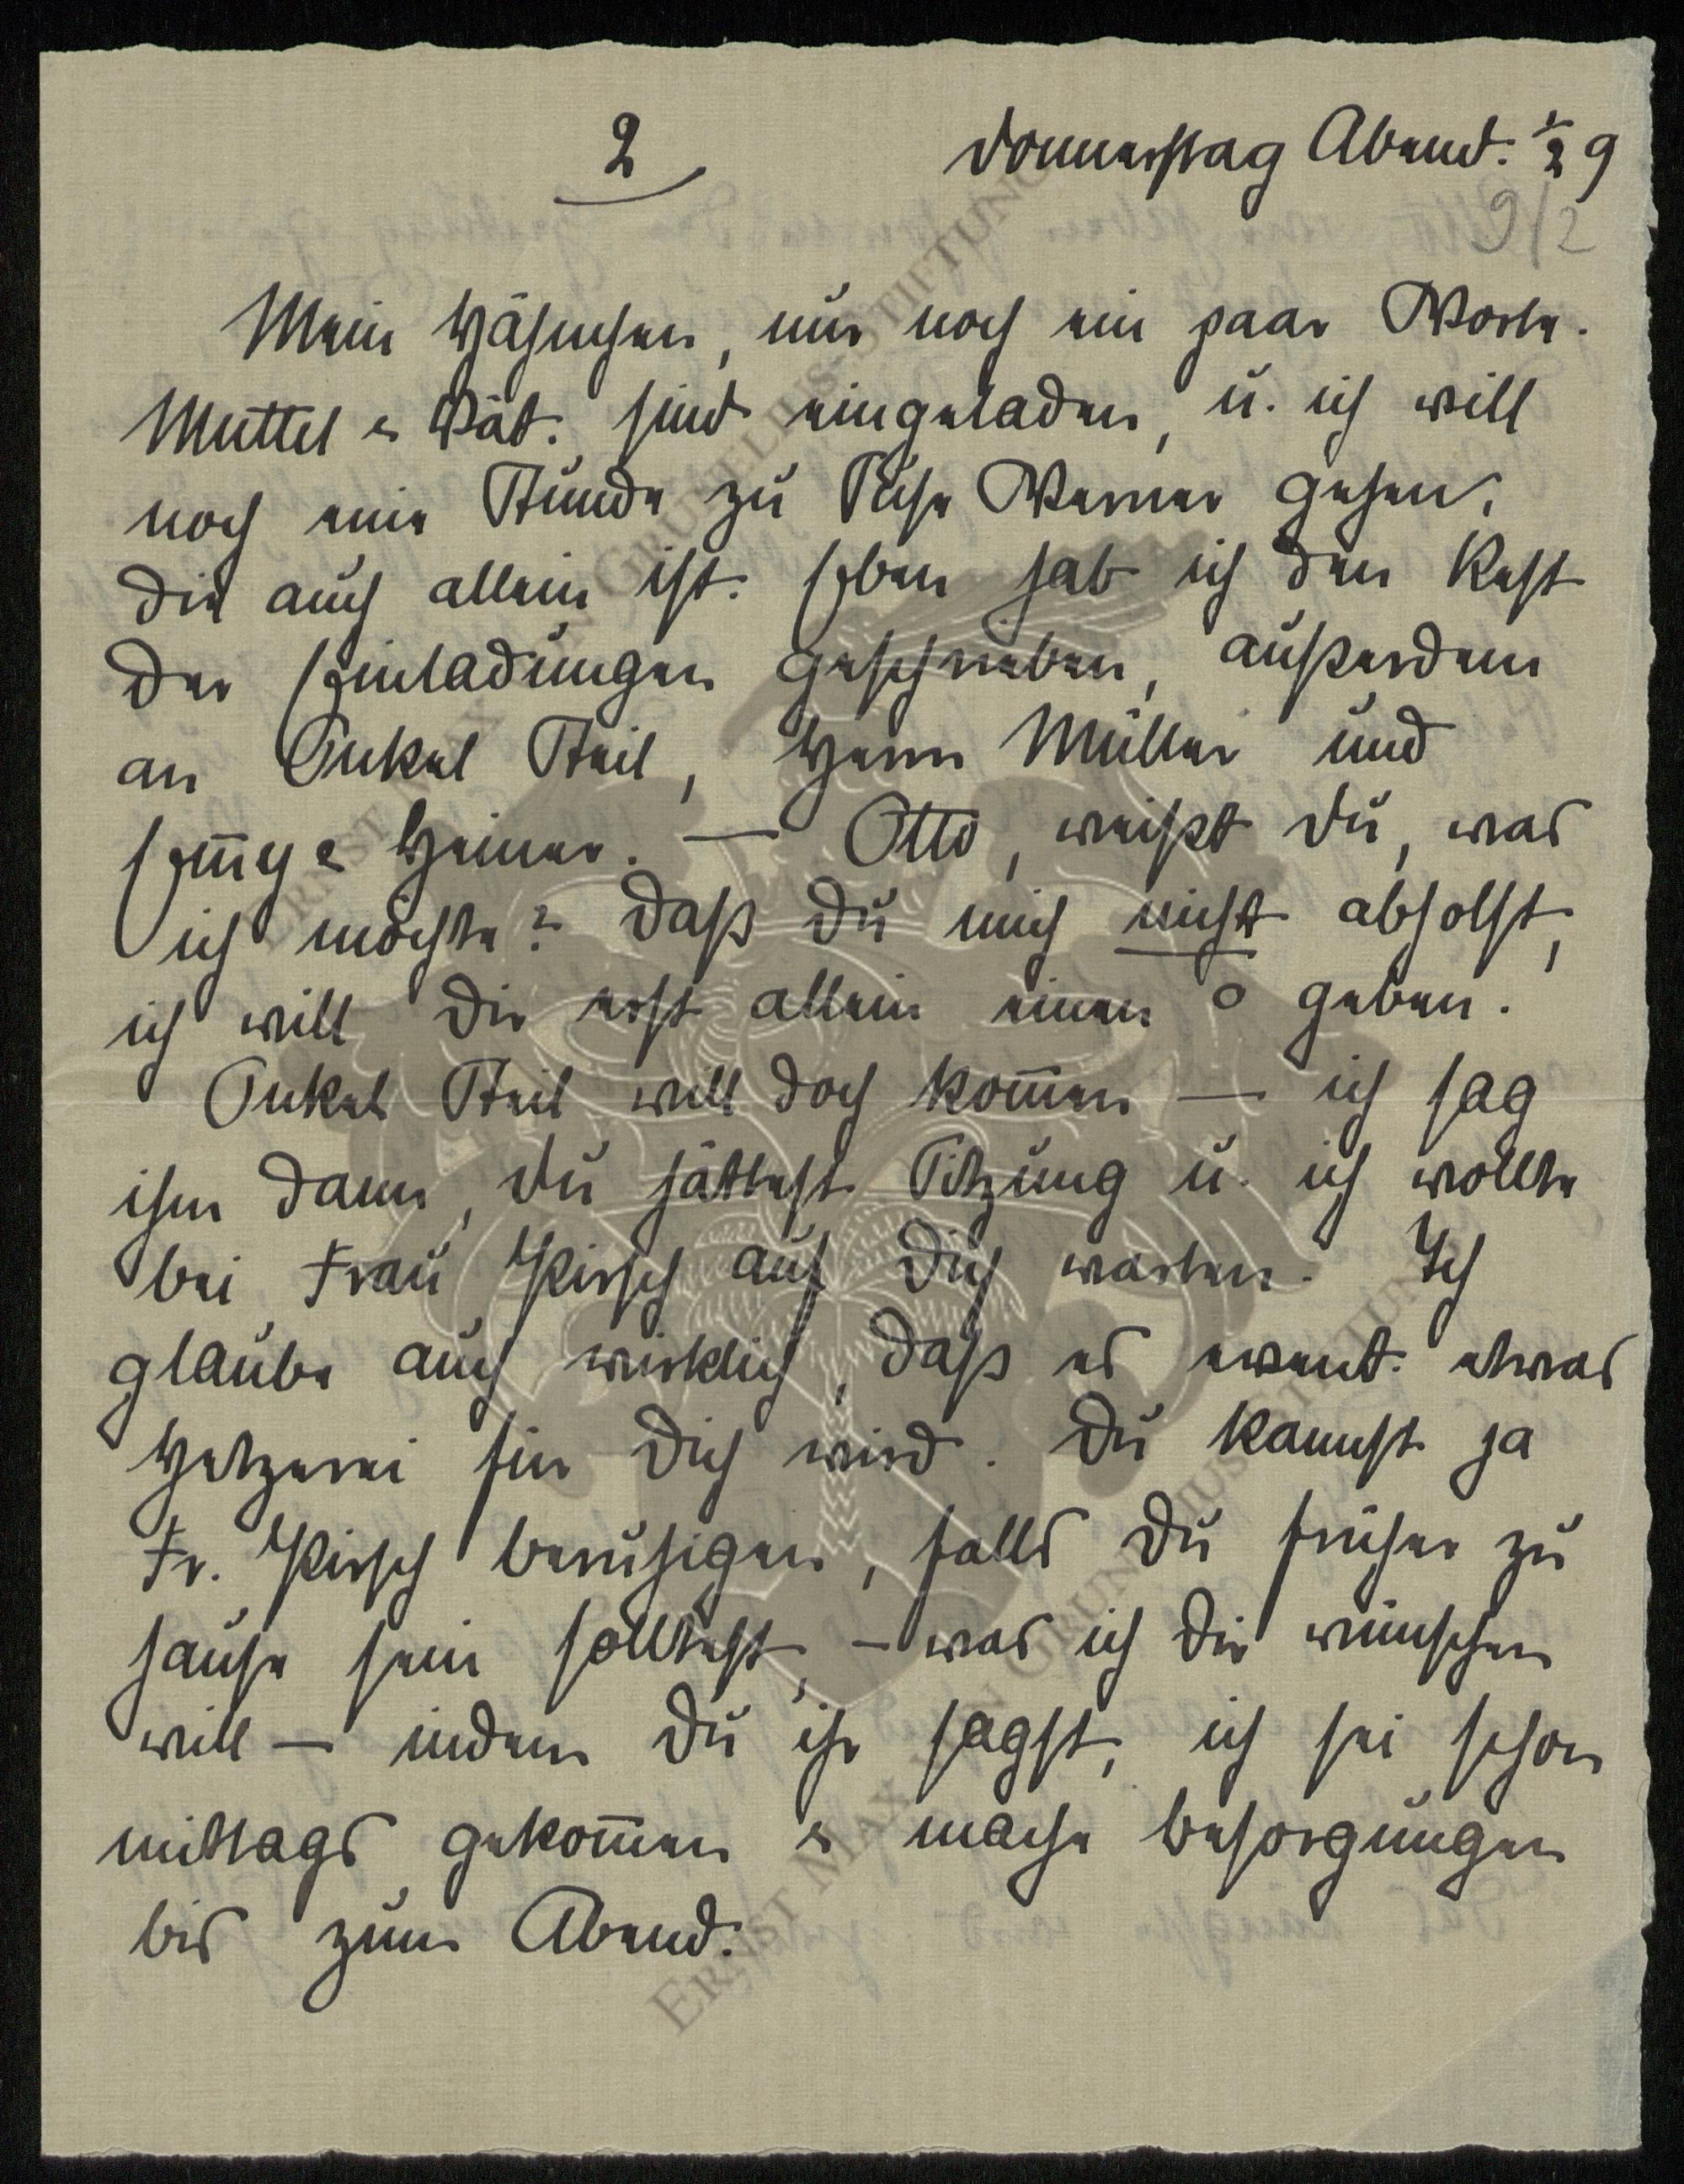 2
Donnerstag Abend. ½ 9
9/2
Mein Hähnchen, nur noch ein paar Worte.
Muttel & Vät. sind eingeladen, u. ich will
noch eine Stunde zu Suse Werner gehen,
die auch allein ist. Eben hab ich den Rest
der Einladungen geschrieben, außerdem
an Onkel Steil, Herrn Müller und
Em̅y & Heiner. — Otto, weißt Du, was
ich möchte? Daß Du mich nicht abholst,
ich will Dir erst allein einen o geben.
Onkel Steil will doch kom̅en — ich sag
ihm dann, Du hättest Sitzung u. ich wollte
bei Frau Kirsch auf Dich warten. Ich
glaube auch wirklich, daß es event. etwas
Hetzerei für Dich wird. Du kannst ja
Fr. Kirsch beruhigen, falls Du früher zu
hause sein solltest, – was ich Dir wünschen
will — indem Du ihr sagst, ich sei schon
mittags gekom̅en & mache Besorgungen
bis zum Abend.
ERNST MAX VON GRUNELIUS-STIFTUNG
ERNST MAX VON GRUNELIUS-STIFTUNG